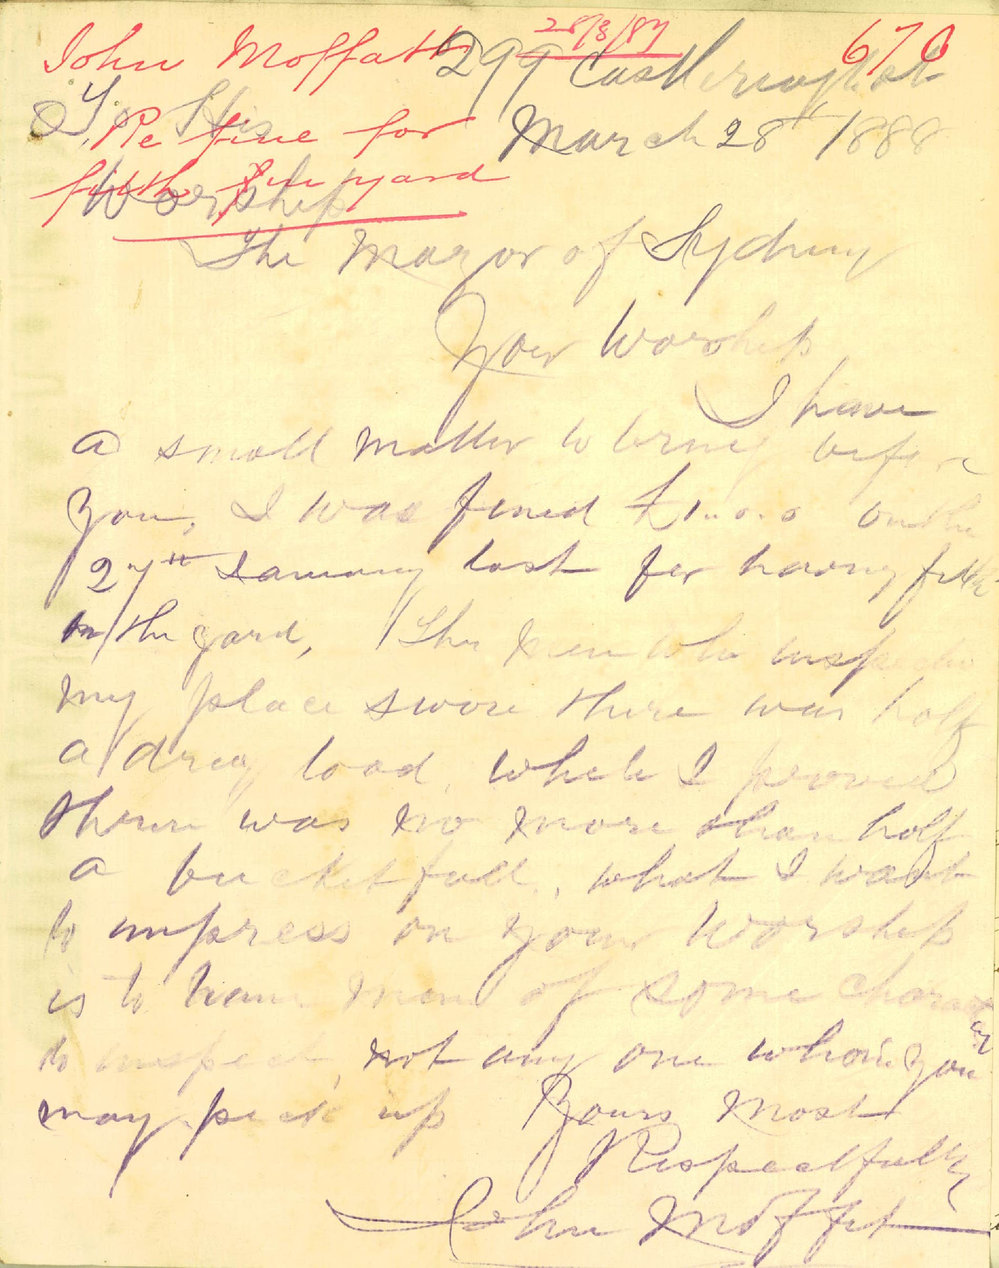 John Moffatt 28/3/87 670
299 Castlereagh st
To His
Re fine for
March 28th 1888
filth in yard
Worship
The Mayor of Sydney
Your Worship
I have
a small matter to bring before
you, I was fined £1..0.0 on the
27th January last for having filth
in the yard, The men who inspected
my place swore there was half
a dray load, while I proved
there was no more than half
a bucket full, what I want
to impress on your Worship
is to have men of some character
to inspect, not any one whom you
may pick up Yours most
Respectfully
John Moffet